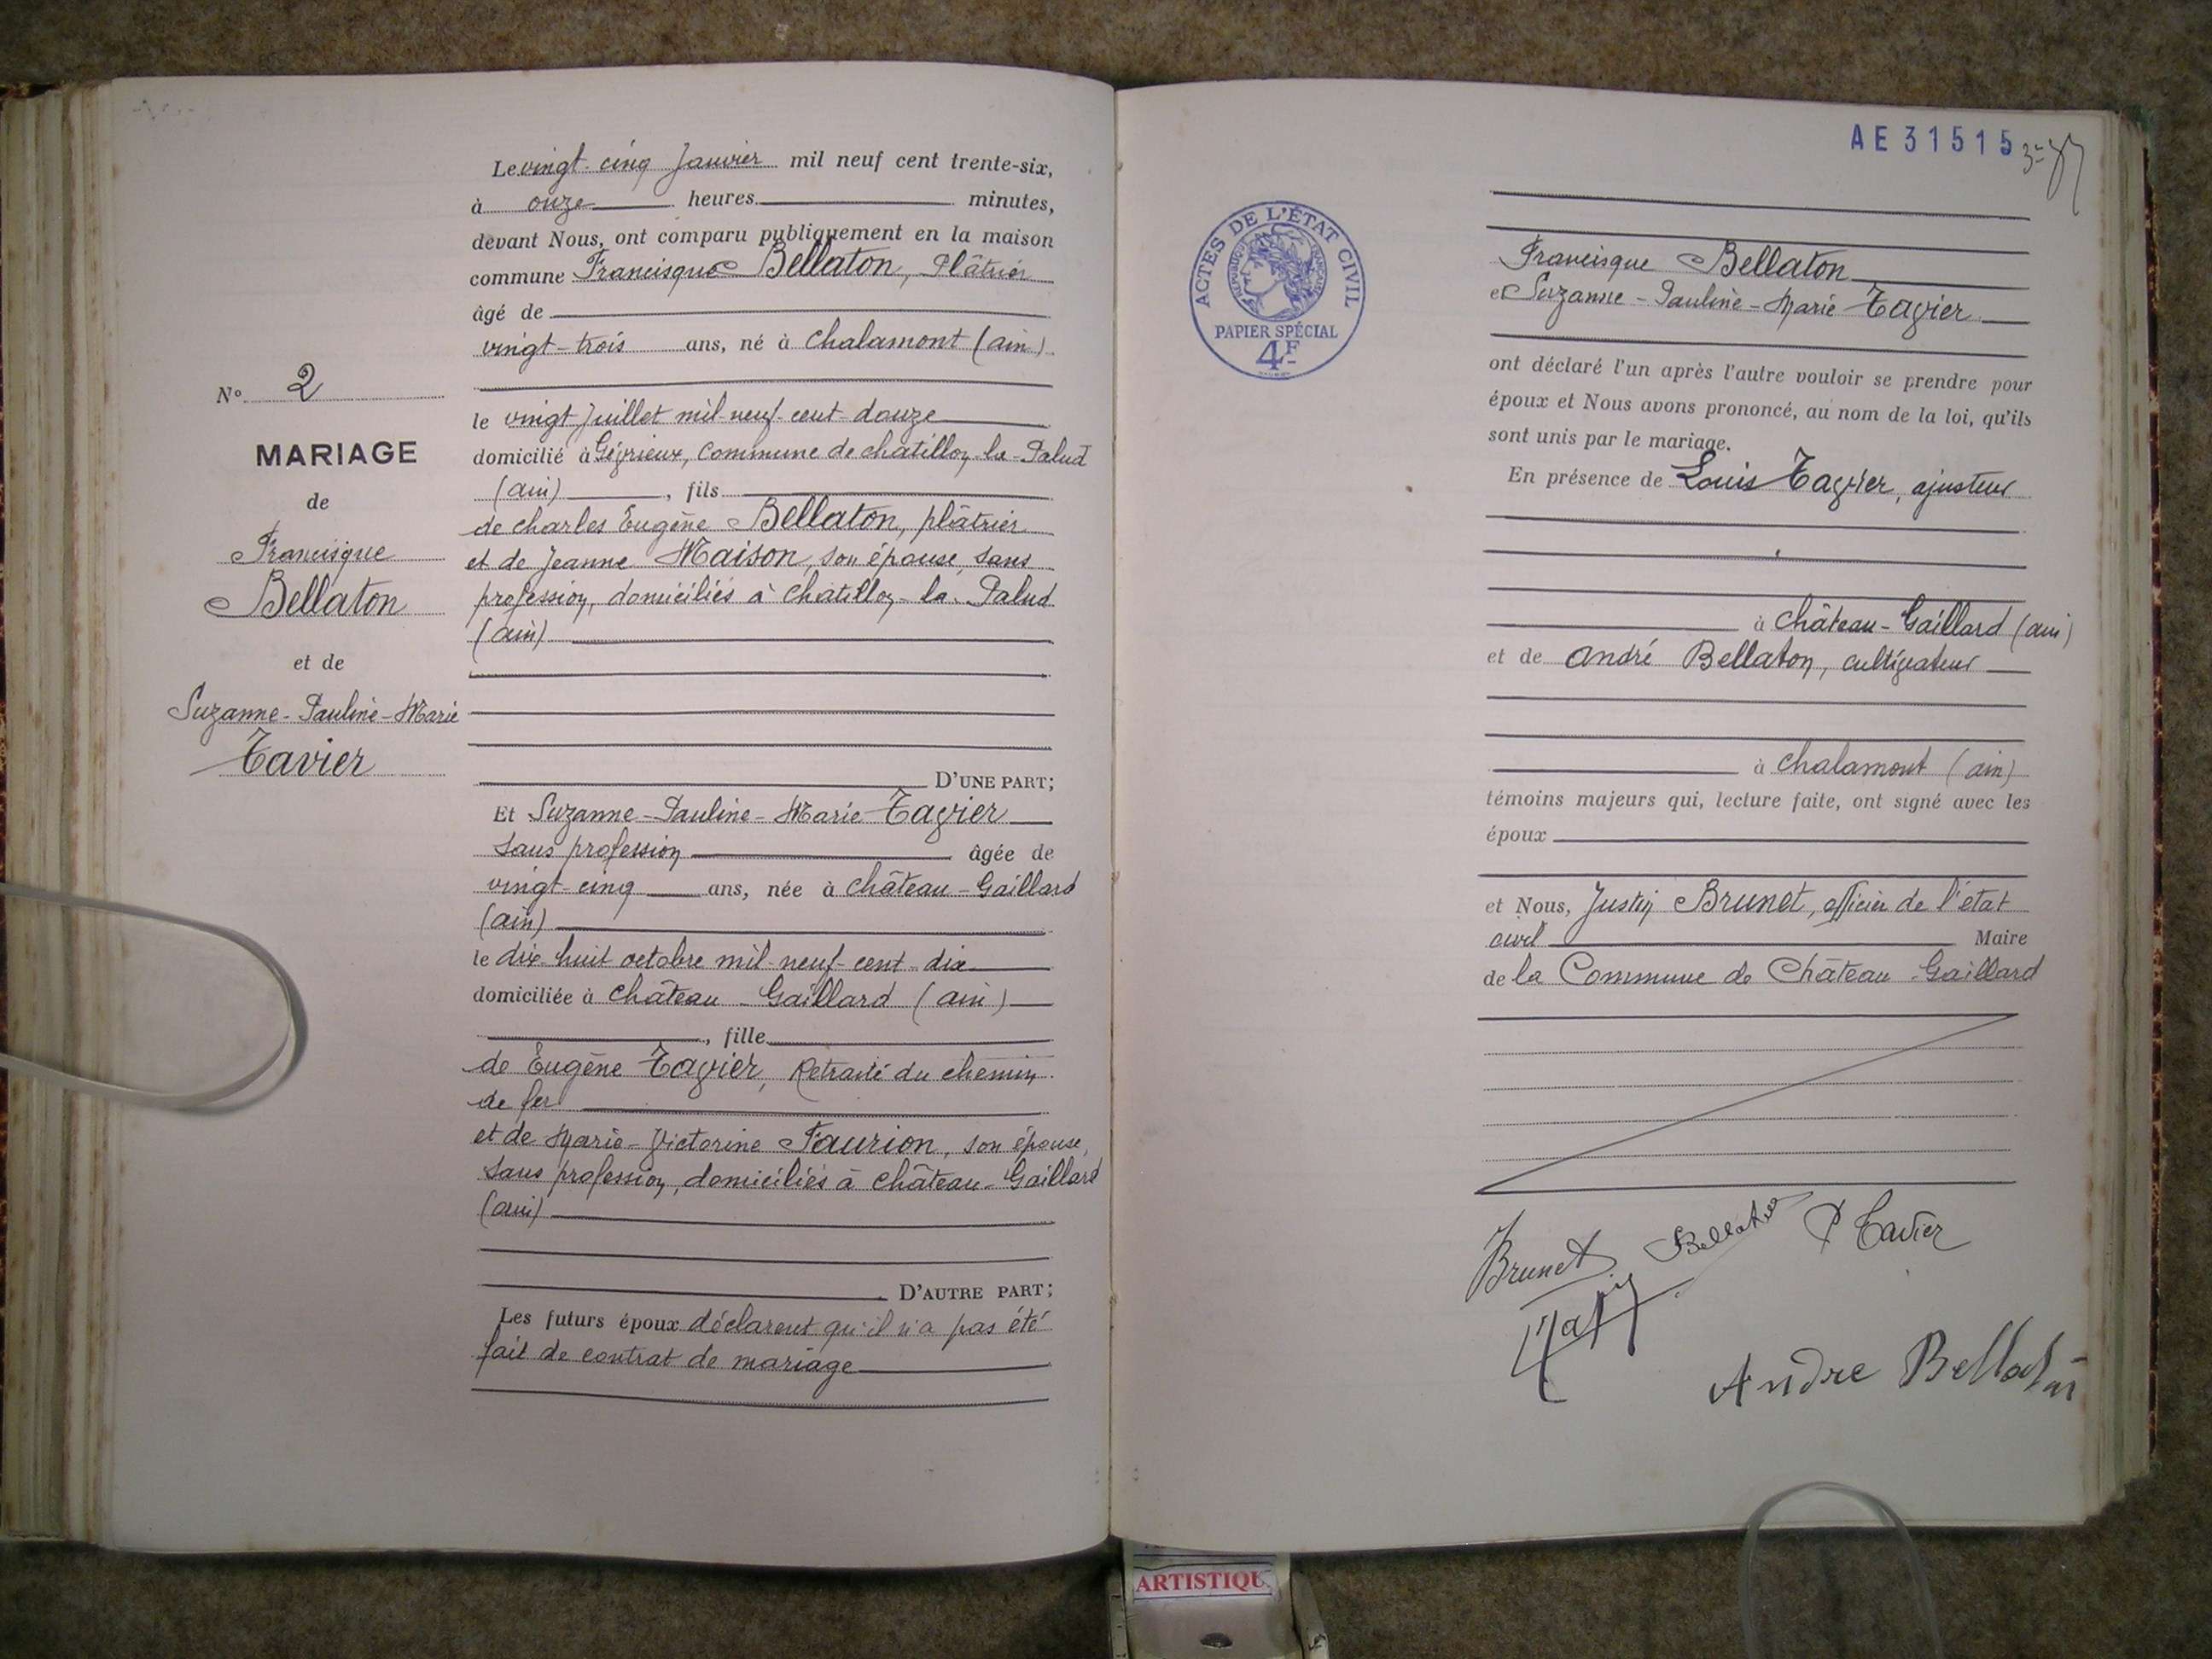 Le vingt-cinq Janvier mil neuf cent trente-six,
à onze heures minutes,
devant Nous, ont comparu publiquement en la maison
commune Francisque Bellaton, Plâtrier
âgé de
vingt-trois ans, né à Chalamont (ain)
le vingt Juillet mil-neuf-cent-douze
domicilié à Gévrieux, Commune de Chatillon-la-Palud
(ain), fils
de Charles Eugène Bellaton, plâtrier
et de Jeanne Maison, son épouse, sans
profession, domiciliés à Chatillon-la-Palud
(ain)
D'UNE PART;
Et Suzanne-Pauline-Marie Tavier
sans profession âgée de
vingt-cinq ans, née à Château-Gaillard
(ain)
le dix-huit octobre mil-neuf-cent-dix
domiciliée à Château-Gaillard (ain)
, fille
de Eugène Tavier, Retraité du chemin
de fer
et de Marie-Victorine Faurion, son épouse,
sans profession, domiciliés à Château-Gaillard
(ain)
D'AUTRE PART;
Les futurs époux déclarent qu'il n'a pas été
fait de contrat de mariage
N° 2
MARIAGE
de
Francisque
Bellaton
et de
Suzanne-Pauline-Marie
Tavier
AE 31515
ACTES DE L'ÉTAT CIVIL
RÉPUBLIQUE FRANÇAISE
PAPIER SPÉCIAL
4F
Francisque Bellaton
et Suzanne-Pauline-Marie Tavier
ont déclaré l'un après l'autre vouloir se prendre pour
époux et Nous avons prononcé, au nom de la loi, qu'ils
sont unis par le mariage.
En présence de Louis Tavier, ajusteur
à Château-Gaillard (ain)
et de André Bellaton, cultivateur
à Chalamont (ain)
témoins majeurs qui, lecture faite, ont signé avec les
époux
et Nous, Justin Brunet, officier de l'état
civil Maire
de la Commune de Château-Gaillard
Brunet Bellaton P Tavier
Andre Bellaton
ARTISTIQU